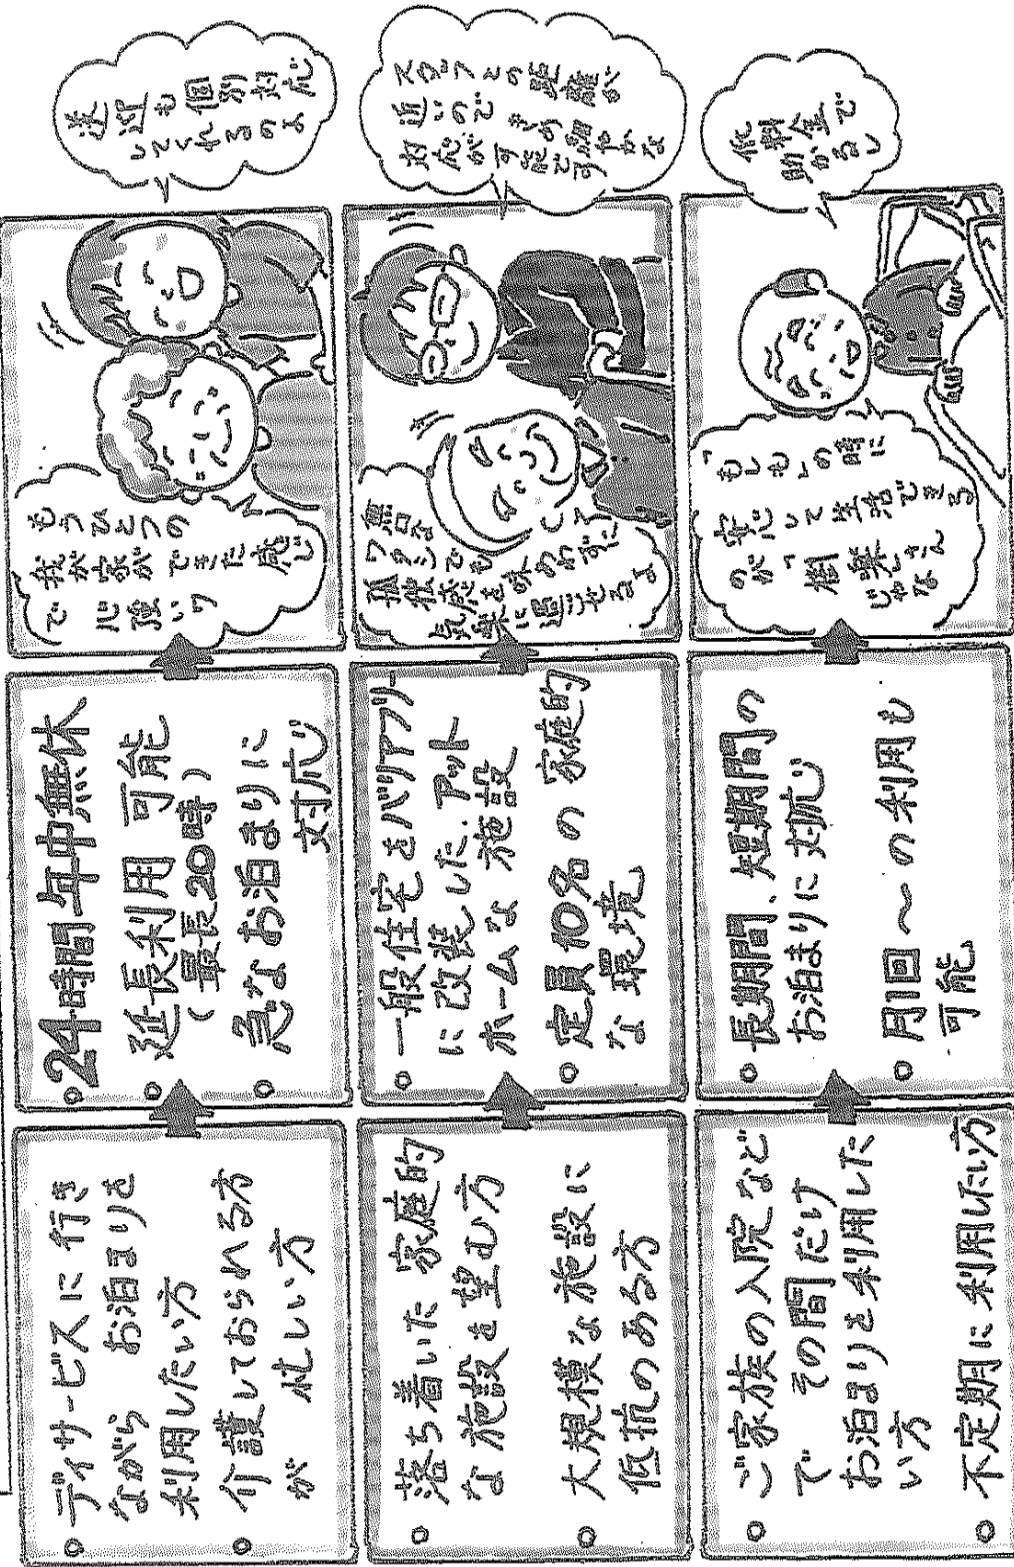 ・ディサービスに行き
ながら お泊まりを
利用したい方
・介護しておられる方
が 忙しい方
・24時間年中無休
・延長利用 可能
(最長20時)
・急なお泊まりに
対応
もうひとつの
我が家ができた感じ
で心強いワ
送迎も個別対応
してくれるのよ
・落ち着いた 家庭的
な施設を望む方
・大規模な施設に
低抗のある方
・一般住宅をバリアフリー
に改装した、アット
ホームな 施設
・定員10名の 家庭的
な 環境
無口な
ワタシでも
孤独感を味わわずに
気楽に過ごせるよ
スタッフとの距離が
近いので きめ細やかな
対応が可能です
・ご家族の入院など
で その間だけ
お泊まりを利用した
い方
・不定期に利用したい方
・長期間、短期間の
お泊まりに対応
・月1回〜の利用も
可能
「もしも」の時に
安心して生活できる
のが
低料金で
助かるし